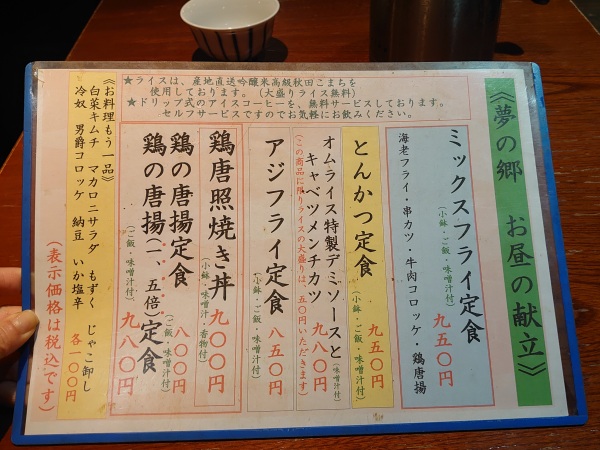 《夢の郷　お昼の献立》
ミックスフライ定食
(小鉢・ご飯・味噌汁付)
九五〇円
海老フライ・串カツ・牛肉コロッケ・鶏唐揚
とんかつ定食
九五〇円
(小鉢・ご飯・味噌汁付)
オムライス特製デミソースと
キャベツメンチカツ
(味噌汁付)
九八〇円
(この商品に限りライスの大盛りは、五〇円いただきます)
アジフライ定食
八五〇円
(小鉢・ご飯・味噌汁付)
鶏唐照焼き丼
九〇〇円
(小鉢・味噌汁・香物付)
鶏の唐揚定食
八〇〇円
(ご飯・味噌汁付)
鶏の唐揚(一、五倍)定食
九八〇円
(ご飯・味噌汁付)
★ライスは、産地直送吟醸米高級秋田こまちを
使用しております。(大盛りライス無料)
★ドリップ式のアイスコーヒーを、無料サービスしております。
セルフサービスですのでお気軽にお飲みください。
《お料理もう一品》
白菜キムチ　マカロニサラダ　もずく　じゃこ卸し
冷奴　男爵コロッケ　納豆　いか塩辛　各一〇〇円
(表示価格は税込です)